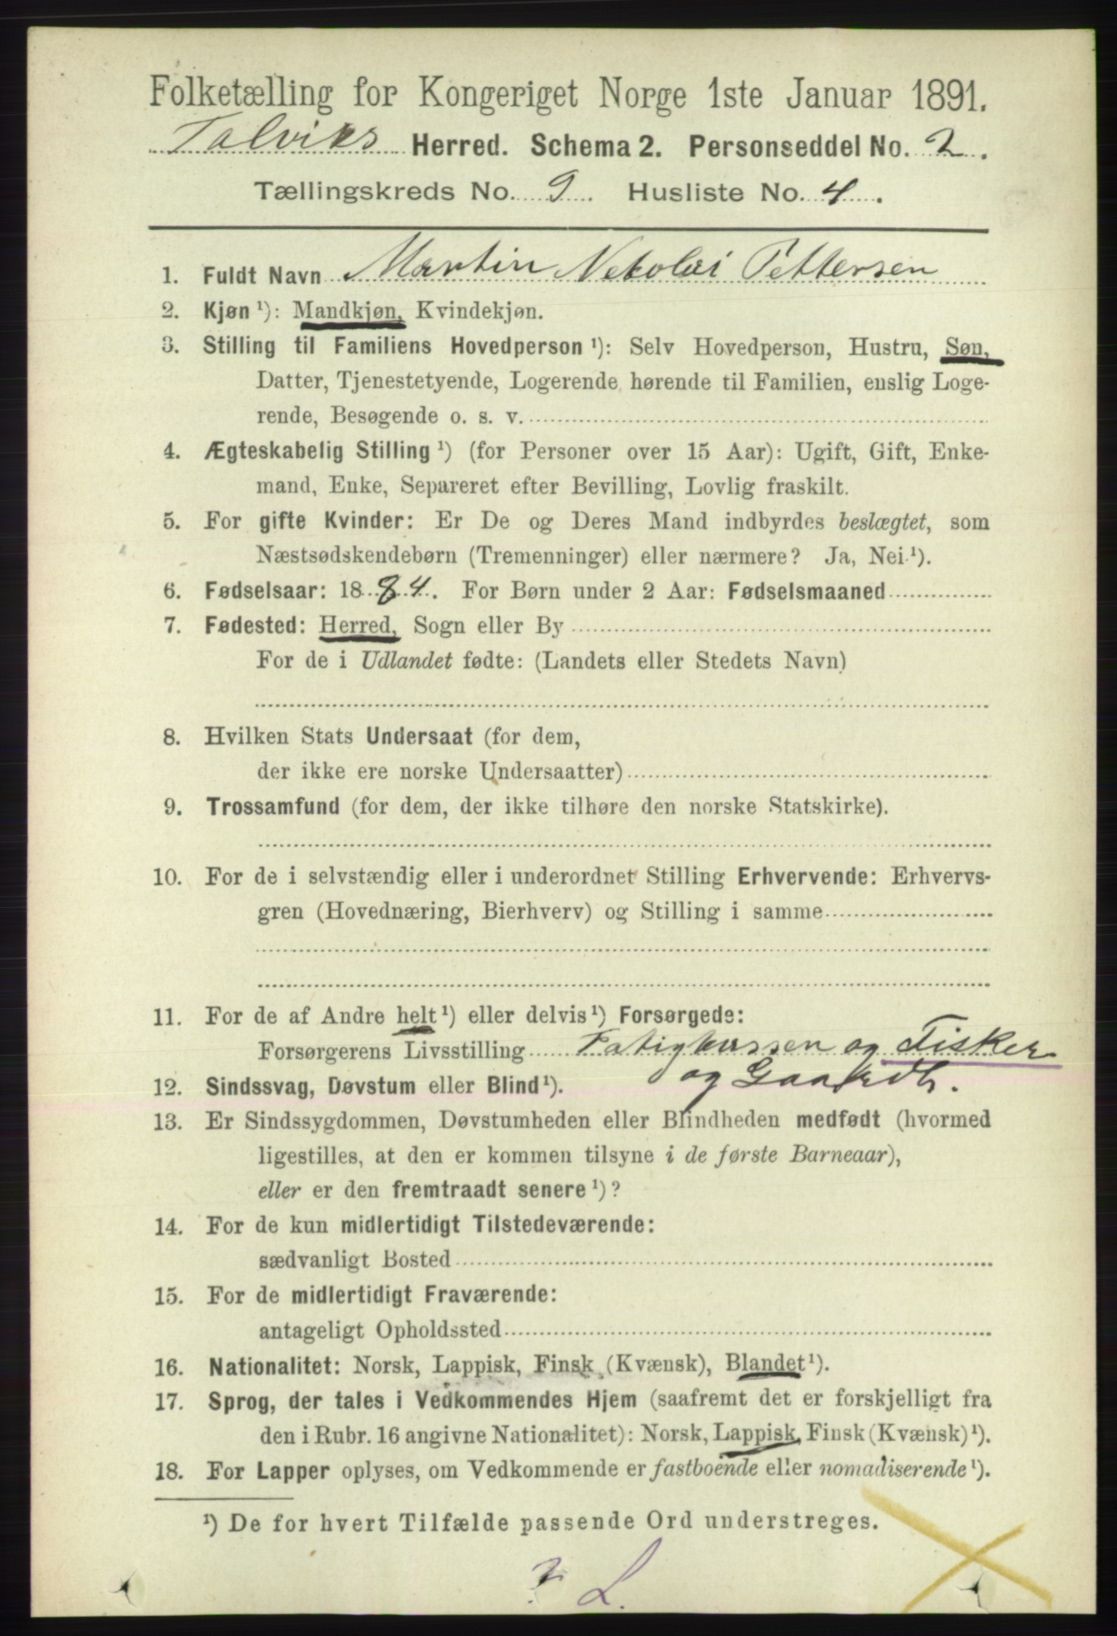 Folketælling for Kongeriget Norge 1ste Januar 1891.
Talviks Herred. Schema 2. Personseddel No. 2.
Tællingskreds No. 9. Husliste No. 4.
1. Fuldt Navn Martin Nekolai Pettersen
2. Kjøn ¹): Mandkjøn, Kvindekjøn.
3. Stilling til Familiens Hovedperson ¹): Selv Hovedperson, Hustru, Søn,
Datter, Tjenestetyende, Logerende hørende til Familien, enslig Loge-
rende, Besøgende o. s. v.
4. Ægteskabelig Stilling ¹) (for Personer over 15 Aar): Ugift, Gift, Enke-
mand, Enke, Separeret efter Bevilling, Lovlig fraskilt.
5. For gifte Kvinder: Er De og Deres Mand indbyrdes beslægtet, som
Næstsødskendebørn (Tremenninger) eller nærmere? Ja, Nei ¹).
6. Fødselsaar: 1884. For Børn under 2 Aar: Fødselsmaaned
7. Fødested: Herred, Sogn eller By
For de i Udlandet fødte: (Landets eller Stedets Navn)
8. Hvilken Stats Undersaat (for dem,
der ikke ere norske Undersaatter)
9. Trossamfund (for dem, der ikke tilhøre den norske Statskirke).
10. For de i selvstændig eller i underordnet Stilling Erhvervende: Erhvervs-
gren (Hovednæring, Bierhverv) og Stilling i samme
11. For de af Andre helt ¹) eller delvis ¹) Forsørgede:
Forsørgerens Livsstilling Fatigkassen og Fisker
og Gaardb.
12. Sindssvag, Døvstum eller Blind ¹).
13. Er Sindssygdommen, Døvstumheden eller Blindheden medfødt (hvormed
ligestilles, at den er kommen tilsyne i de første Barneaar),
eller er den fremtraadt senere ¹)?
14. For de kun midlertidigt Tilstedeværende:
sædvanligt Bosted
15. For de midlertidigt Fraværende:
antageligt Opholdssted
16. Nationalitet: Norsk, Lappisk, Finsk (Kvænsk), Blandet ¹).
17. Sprog, der tales i Vedkommendes Hjem (saafremt det er forskjelligt fra
den i Rubr. 16 angivne Nationalitet): Norsk, Lappisk, Finsk (Kvænsk) ¹).
18. For Lapper oplyses, om Vedkommende er fastboende eller nomadiserende ¹).
¹) De for hvert Tilfælde passende Ord understreges.
L.